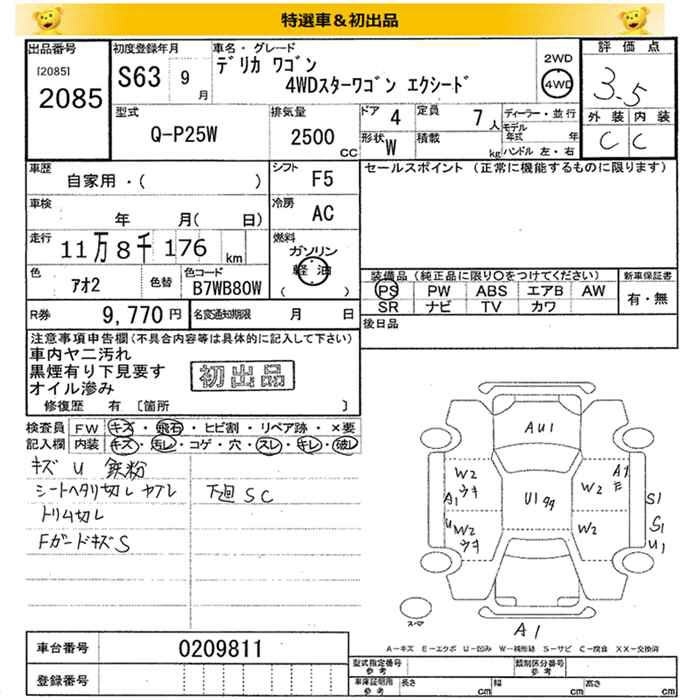 特選車&初出品
出品番号 初度登録年月 車名・グレード 評価点
[2085] デリカ ワゴン 2WD
2085 S63 9月 4WDスターワゴン エクシード 4WD 3.5
型式 排気量 ドア 4 定員 7人 ディーラー・並行 外装 内装
Q-P25W 2500CC 形状 W 積載 kg モデル年式 年 C C
ハンドル 左・右
車歴 シフト セールスポイント (正常に機能するものに限ります)
自家用・( ) F5
車検 冷房
年 月( 日) AC
走行 燃料
11万8千176km ガソリン
軽油
( )
色 色替 色コード 装備品 (純正品に限り○をつけてください) 新車保証書
アオ2 B7WB80W PS PW ABS エアB AW 有・無
SR ナビ TV カワ
R券 9,770円 名変通知期限 月 日 後日品
注意事項申告欄(不具合内容等は具体的に記入して下さい)
車内ヤニ汚れ
黒煙有り下見要す
オイル滲み
初出品
修復歴 有 [箇所 ]
検査員 FW キズ・飛石・ヒビ割・リペア跡・×要
記入欄 内装 キズ・汚レ・コゲ・穴・スレ・キレ・破レ
キズ U 鉄粉
シートヘタリ切レ ヤブレ 下廻SC
トリム切レ
FガードキズS
AU1
W2 ウキ W2 A1 E
A1 U1 S1
U W2 ウキ W2 S1
U1
スマ
A1
A-キズ E-エクボ U-凹み W-補修跡 S-サビ C-腐食 XX-交換済
車台番号 0209811
登録番号
型式指定番号 参考 類別区分番号 参考
車庫証明用 参考 長さ cm 幅 cm 高さ cm